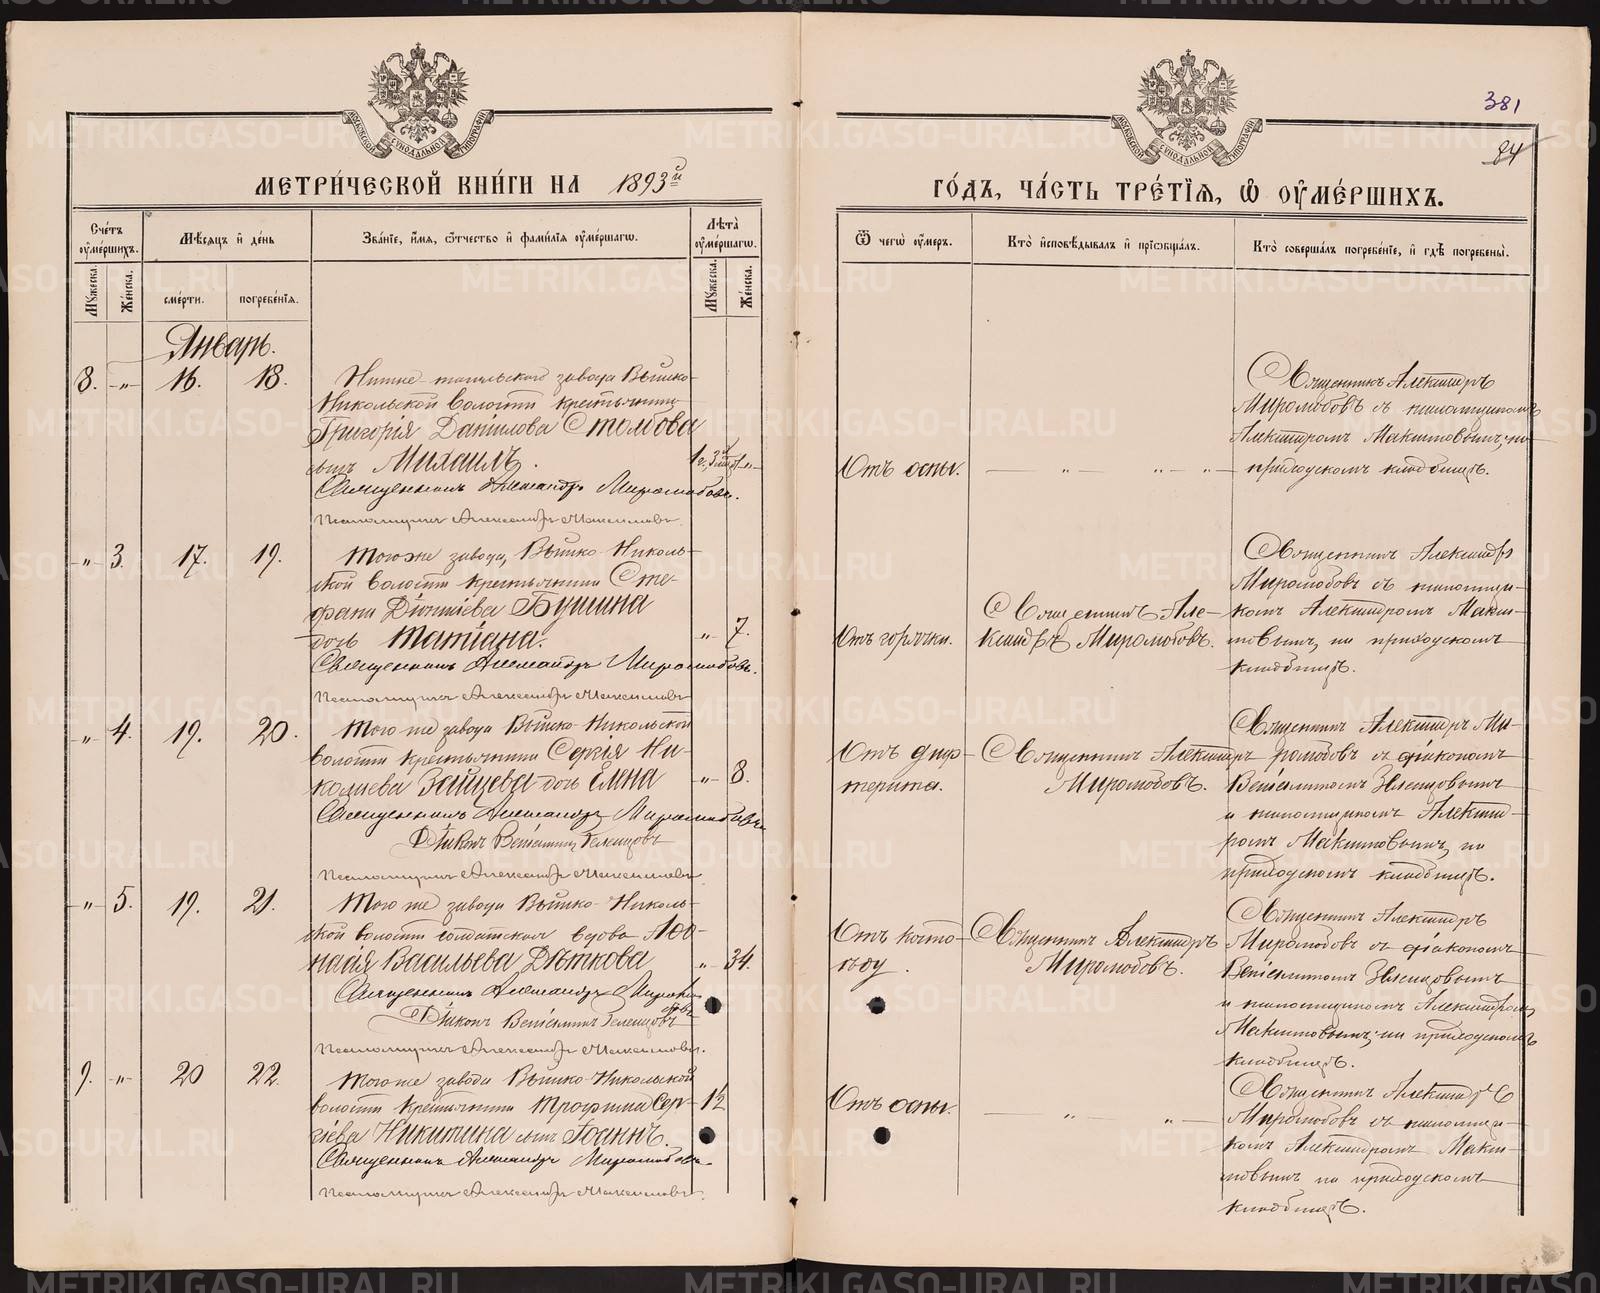 381
84
МЕТРИ́ЧЕСКОЙ КНИ́ГИ НА 1893й
ГО́ДЪ, ЧА́СТЬ ТРЕ́ТЇѦ, Ѽ ОУ҆МЕ́РШИХЪ.
Сче́тъ оу҆ме́ршихъ.
Мѣ́сѧцъ и҆ де́нь
Зва́нїе, и҆́мѧ, ѻ҆́тчество и҆ фами́лїѧ оу҆ме́ршагѡ.
Лѣта̀ оу҆ме́ршагѡ.
Мꙋ́жеска.
Же́нска.
сме́рти.
погребе́нїѧ.
Мꙋ́жеска.
Же́нска.
Ѿ чегѡ̀ оу҆́меръ.
Кто̀ и҆сповѣ́дывалъ и҆ прїѡбща́лъ.
Кто̀ соверша́лъ погребе́нїе, и҆ гдѣ̀ погребены̀.
Январь.
8. „ 16. 18.
Нижне-тагильскаго завода Выйско-
Никольской волости крестьянина
Григорія Данілова Столбова
сынъ Михаилъ.
Священникъ Александръ Миролюбовъ.
Псаломщикъ Александръ Максимовъ.
Отъ оспы. „ „ „
Священникъ Александръ
Миролюбовъ съ псаломщикомъ
Александромъ Максимовымъ, на
приходскомъ кладбищѣ.
„ 3. 17. 19.
Тогоже завода, Выйско-Николь-
ской волости крестьянина Сте-
фана Діонисіева Бушина
дочь Татіана. „ 7.
Священникъ Александръ Миролюбовъ.
Псаломщикъ Александръ Максимовъ
Отъ горячки.
Священникъ Але-
ксандръ Миролюбовъ.
Священникъ Александръ
Миролюбовъ съ псаломщи-
комъ Александромъ Макси-
мовымъ, на приходскомъ
кладбищѣ.
„ 4. 19. 20.
Того же завода Выйско-Никольской
волости крестьянина Сергія Ни-
колаева Зайцева дочь Елена „ 8.
Священникъ Александръ Миролюбовъ
Діаконъ Веніаминъ
Псаломщикъ Александръ Максимовъ
Отъ диф-
терита.
Священникъ Александръ
Миролюбовъ.
Священникъ Александръ Ми-
ролюбовъ съ діакономъ
Веніаминомъ
и псаломщикомъ Алексан-
дромъ Максимовымъ, на
приходскомъ кладбищѣ.
„ 5. 19. 21.
Того же завода Выйско-Николь-
ской волости солдатская вдова
Васильева Дѣткова „ 34.
Священникъ Александръ Миролюбовъ
Діаконъ Веніаминъ
Псаломщикъ Александръ Максимовъ.
Священникъ Александръ
Миролюбовъ.
Священникъ Александръ
Миролюбовъ съ діакономъ
Веніаминомъ
и псаломщикомъ Александромъ
Максимовымъ, на приходскомъ
кладбищѣ.
9. „ 20 22.
Тогоже завода Выйско-Никольской
волости крестьянина Трофима Сер-
гіева Никитина сынъ Іоаннъ.
Священникъ Александръ Миролюбовъ.
Псаломщикъ Александръ Максимовъ.
Отъ оспы. „ „
Священникъ Александръ
Миролюбовъ съ псаломщи-
комъ Александромъ Макси-
мовымъ на приходскомъ
кладбищѣ.
METRIKI.GASO-URAL.RU